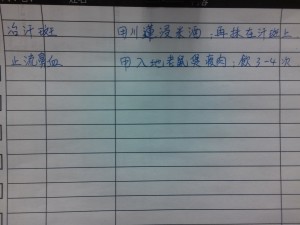 治汗斑 用川蓮浸米酒，再抹在汗斑上
止流鼻血 用入地老鼠煲瘦肉，飲3-4次